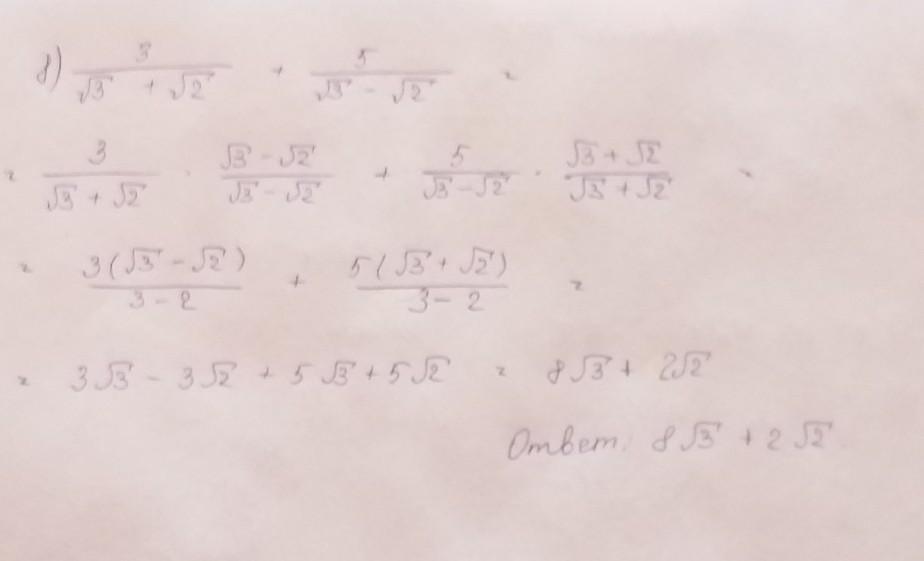 8) 3/(√3 + √2) + 5/(√3 - √2) =
= 3/(√3 + √2) · (√3 - √2)/(√3 - √2) + 5/(√3 - √2) · (√3 + √2)/(√3 + √2) =
= 3(√3 - √2)/(3 - 2) + 5(√3 + √2)/(3 - 2) =
= 3√3 - 3√2 + 5√3 + 5√2 = 8√3 + 2√2
Ответ: 8√3 + 2√2.